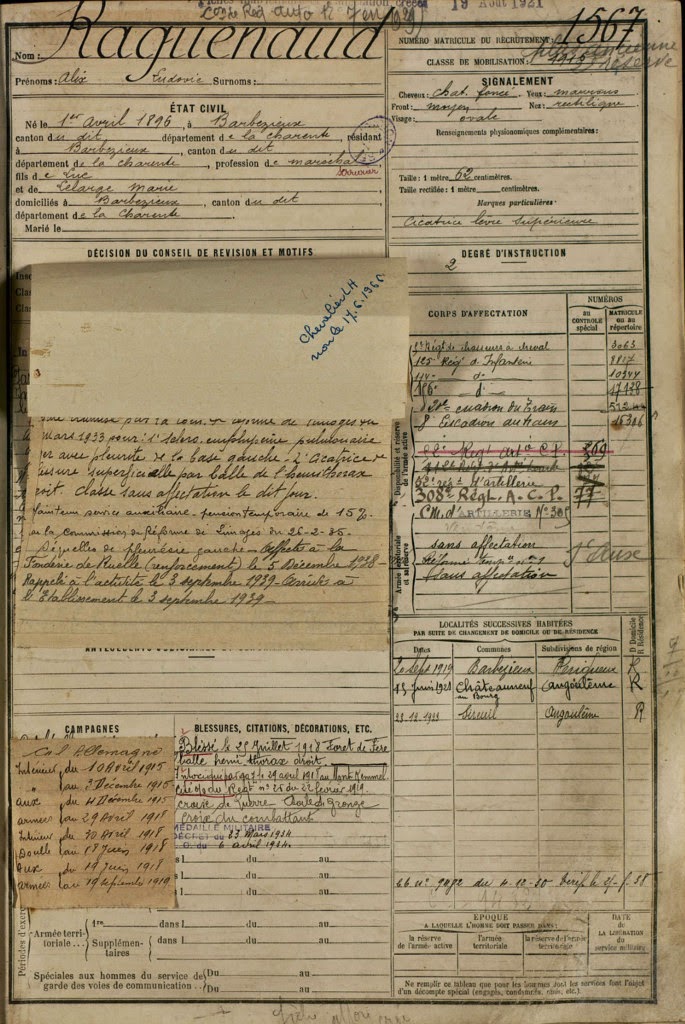 19 Août 1921
Nom: Raguenaud
NUMÉRO MATRICULE DU RECRUTEMENT: 1567
CLASSE DE MOBILISATION: 1915
réserve
Prénoms: Alix Ludovic Surnoms:
ÉTAT CIVIL
Né le 1er Avril 1896, à Barbezieux
canton du dit département de la Charente, résidant
à Barbezieux, canton du dit
département de la Charente, profession de maréchal
fils de Luc
et de Lelarge Marie
domiciliés à Barbezieux, canton du dit
département de la Charente
Marié le
SIGNALEMENT
Cheveux: chat. foncé Yeux: marrons
Front: moyen Nez: rectiligne
Visage: ovale
Renseignements physionomiques complémentaires:
Taille: 1 mètre 62 centimètres.
Taille rectifiée: 1 mètre centimètres.
Marques particulières:
Cicatrice lèvre supérieure
DÉCISION DU CONSEIL DE REVISION ET MOTIFS
DEGRÉ D'INSTRUCTION
2
Chevalier LH
non le
mars 1933 pour:
avec pleurite de la base gauche. 2° Cicatrice de
superficielle par balle de l'hémithorax
droit. Classé sans affectation le dit jour.
Maintenu service auxiliaire - pension temporaire de 15%
de la Commission de Réforme de Limoges du 26-2-35.
Séquelles de pleurésie gauche - Affecté à la
Fonderie de Ruelle (renforcement) le 5 Décembre 1938
Rappelé à l'activité le 3 septembre 1939 - Arrivé à
l'Etablissement le 3 septembre 1939
CORPS D'AFFECTATION
NUMÉROS
AU CONTRÔLE spécial
MATRICULE ou au répertoire
Régt de chasseurs à cheval 3063
125 Rég. d'Infanterie
114e do
186e do
20e escadron du Train
8e Escadron du Train
52e rég. d'artillerie
308e Régt. A.C.P. 77
CM. d'ARTILLERIE N° 309
sans affectation
(sans affectation
Disponibilité et réserve de l'armée active
Armée territoriale et sa réserve
LOCALITÉS SUCCESSIVES HABITÉES
PAR SUITE DE CHANGEMENT DE DOMICILE OU DE RÉSIDENCE
Dates Communes Subdivisions de région D Domicile R Résidence
20 Sept 1919 Barbezieux Périgueux R
15 Janvier 1921 Châteauneuf Angoulême R
23-12-1923 Angoulême R
CAMPAGNES
Allemagne
Intérieur du 10 Avril 1915
au 3 Décembre 1915
aux du 4 Décembre 1915
armées au 29 Avril 1918
Intérieur du 30 Avril 1918
Double au 18 Juin 1918
aux du 19 Juin 1918
armées au 19 septembre 1919
BLESSURES, CITATIONS, DÉCORATIONS, ETC.
Blessé le 25 Juillet 1918 Forêt de Fère
balle hémi thorax droit.
Intoxiqué par gaz le 29 avril 1918 au Mont Kemmel
Cité o/ du Régt n° 25 du 22 février 1919.
croix de Guerre étoile de bronze
Croix du combattant
MÉDAILLE MILITAIRE
DÉCRET du 23 Mars 1934
J.O. du 6 avril 1934.
Périodes d'exercices
Armée territoriale...
1re dans l du au
Supplémentaires
dans l du au
Spéciaux aux hommes du service de
garde des voies de communication
Du au
Du au
ÉPOQUE
A LAQUELLE L'HOMME DOIT PASSER DANS:
la réserve de l'armée active
l'armée territoriale
la réserve de l'armée territoriale
DATE de LA LIBÉRATION du service militaire
Ne remplir ce tableau que pour les hommes dont les services font l'objet
d'un décompte spécial (engagés, condamnés, omis, etc.).